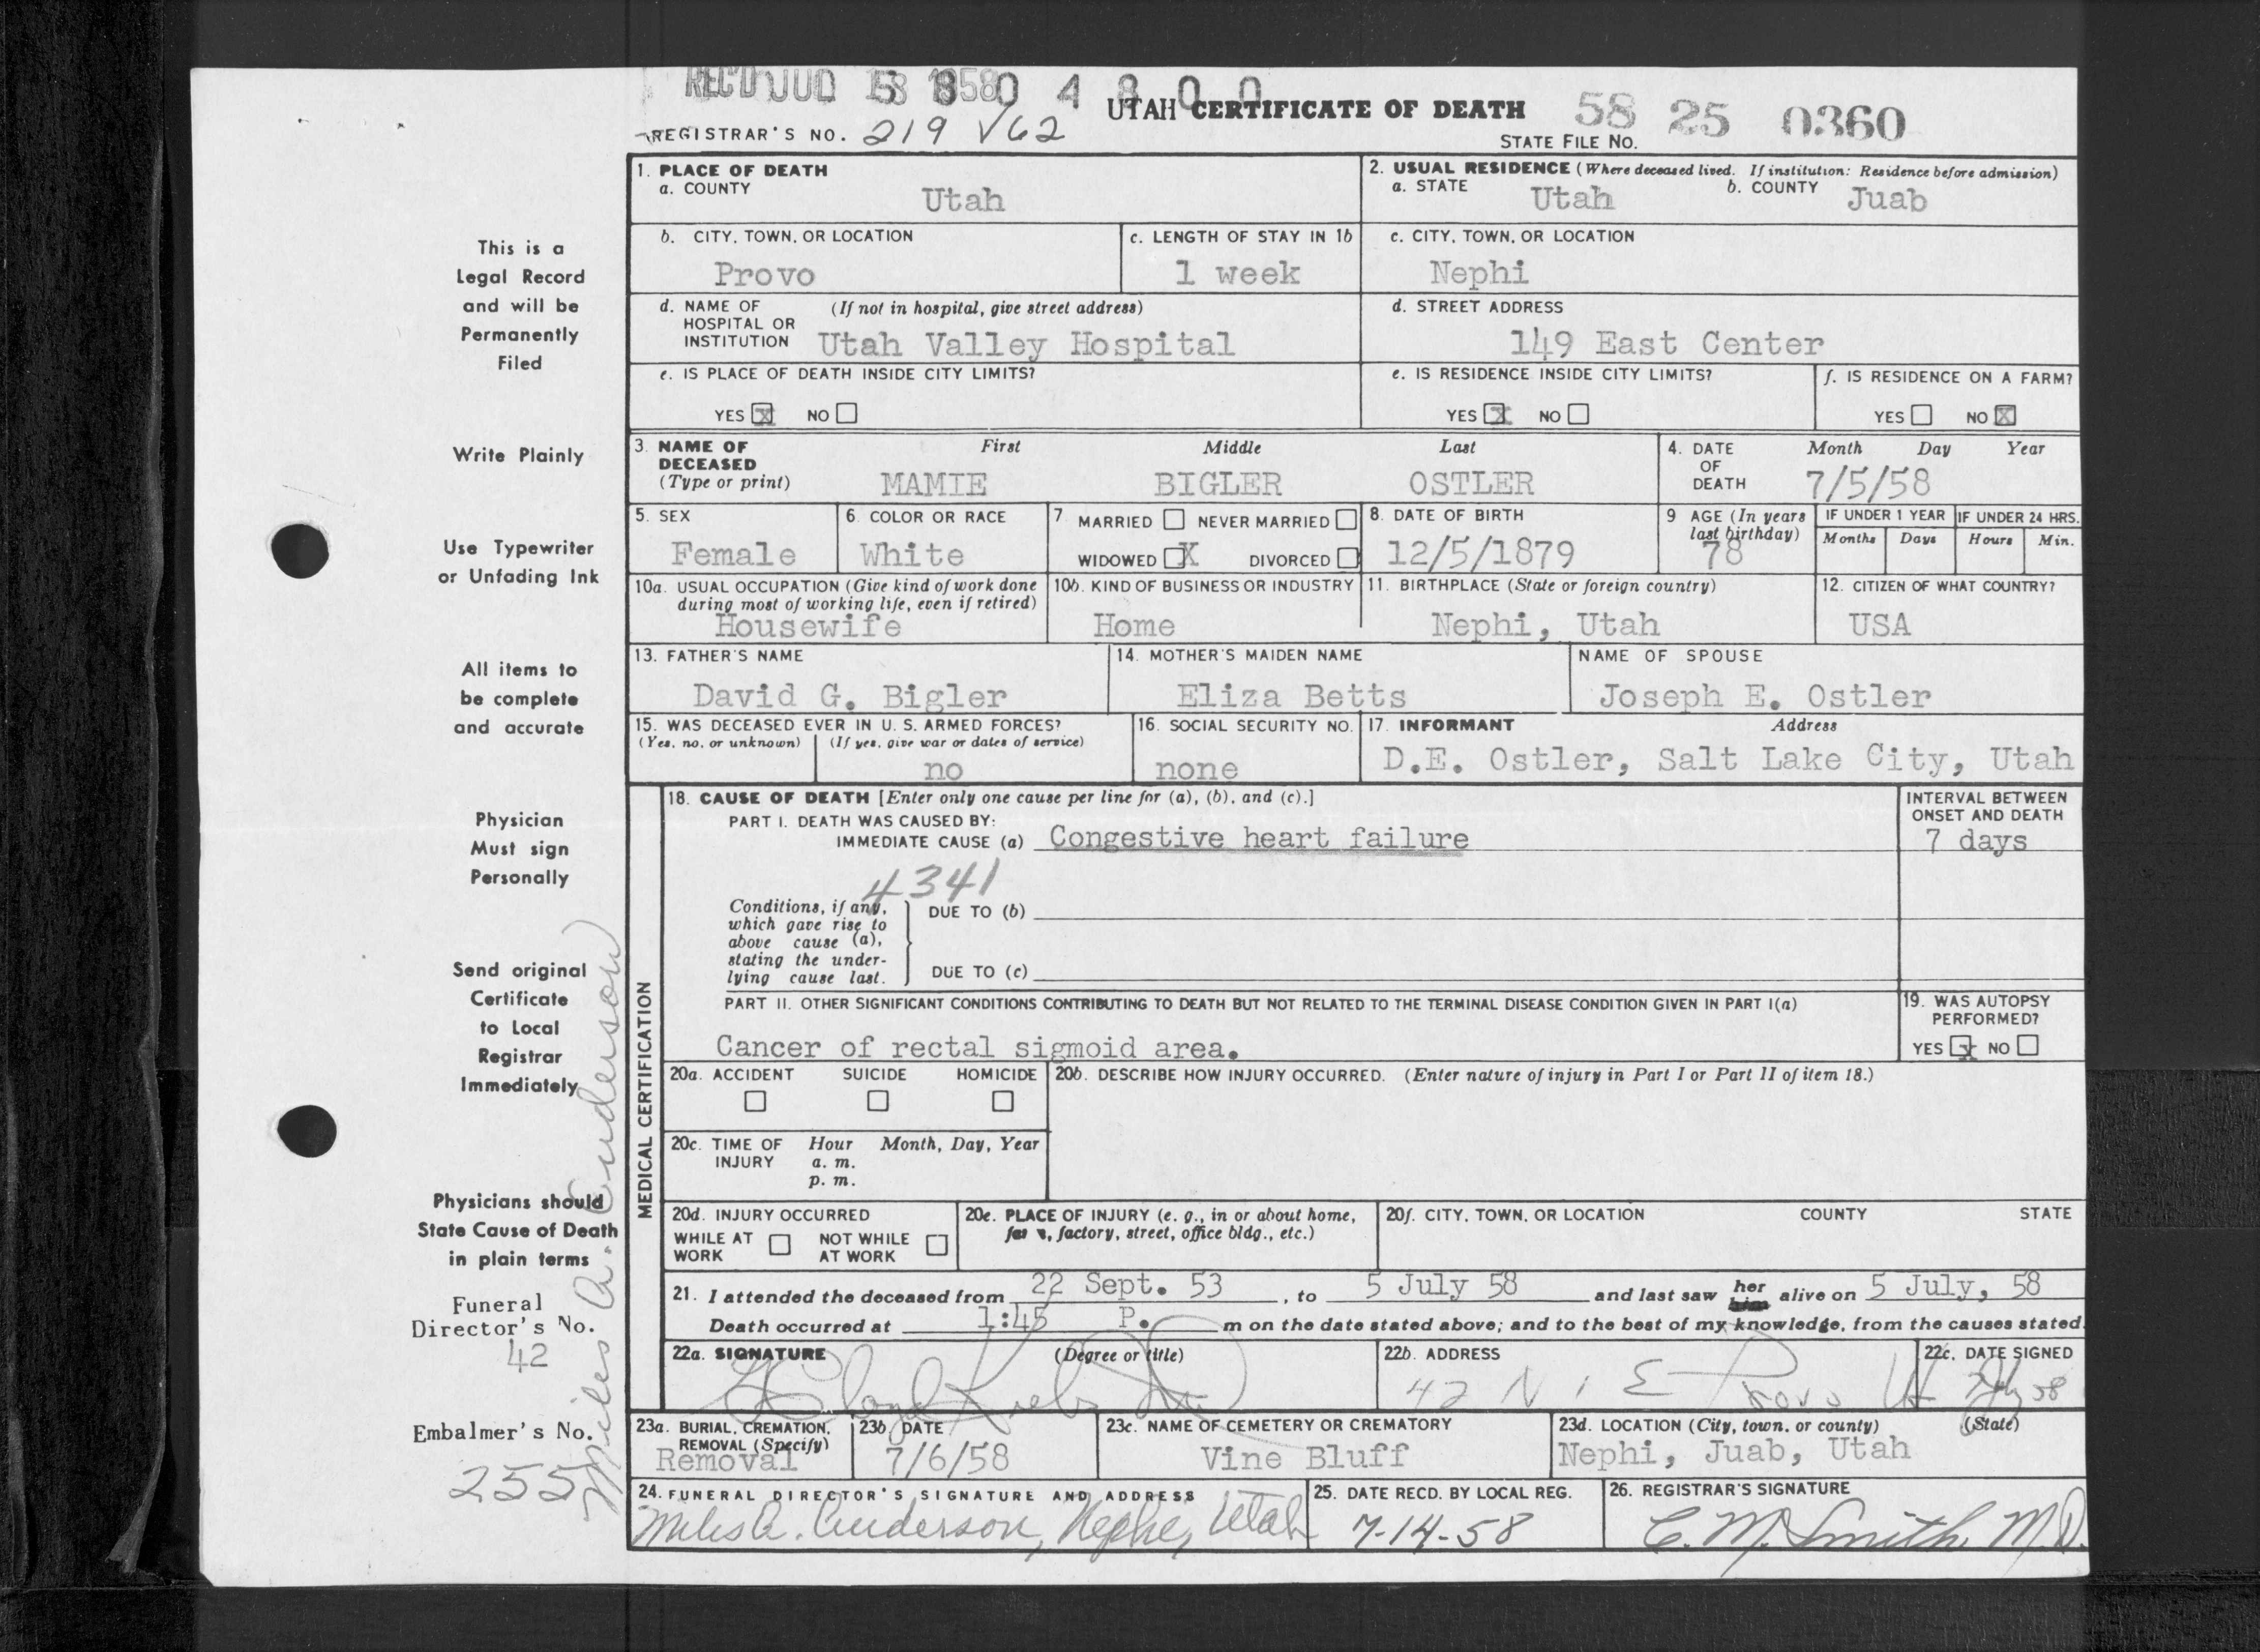 REC'D JUL 1958 0 4 8 0 0
UTAH CERTIFICATE OF DEATH 58 25 0360
REGISTRAR'S NO. 219 V62 STATE FILE NO.
1. PLACE OF DEATH
a. COUNTY Utah
2. USUAL RESIDENCE (Where deceased lived. If institution: Residence before admission)
a. STATE Utah b. COUNTY Juab
b. CITY, TOWN, OR LOCATION Provo
c. LENGTH OF STAY IN 1b 1 week
c. CITY, TOWN, OR LOCATION Nephi
d. NAME OF (If not in hospital, give street address)
HOSPITAL OR
INSTITUTION Utah Valley Hospital
d. STREET ADDRESS
149 East Center
e. IS PLACE OF DEATH INSIDE CITY LIMITS?
YES X NO
e. IS RESIDENCE INSIDE CITY LIMITS?
YES X NO
f. IS RESIDENCE ON A FARM?
YES NO X
3. NAME OF DECEASED (Type or print)
First Middle Last
MAMIE BIGLER OSTLER
4. DATE OF DEATH Month Day Year
7/5/58
5. SEX
Female
6. COLOR OR RACE
White
7. MARRIED NEVER MARRIED
WIDOWED X DIVORCED
8. DATE OF BIRTH
12/5/1879
9 AGE (In years last birthday)
78
IF UNDER 1 YEAR IF UNDER 24 HRS.
Months Days Hours Min.
10a. USUAL OCCUPATION (Give kind of work done
during most of working life, even if retired)
Housewife
10b. KIND OF BUSINESS OR INDUSTRY
Home
11. BIRTHPLACE (State or foreign country)
Nephi, Utah
12. CITIZEN OF WHAT COUNTRY?
USA
13. FATHER'S NAME
David G. Bigler
14. MOTHER'S MAIDEN NAME
Eliza Betts
NAME OF SPOUSE
Joseph E. Ostler
15. WAS DECEASED EVER IN U. S. ARMED FORCES?
(Yes, no, or unknown) (If yes, give war or dates of service)
no
16. SOCIAL SECURITY NO.
none
17. INFORMANT Address
D.E. Ostler, Salt Lake City, Utah
MEDICAL CERTIFICATION
18. CAUSE OF DEATH [Enter only one cause per line for (a), (b), and (c).]
PART I. DEATH WAS CAUSED BY:
IMMEDIATE CAUSE (a) Congestive heart failure
INTERVAL BETWEEN
ONSET AND DEATH
7 days
4341
Conditions, if any,
which gave rise to
above cause (a),
stating the under-
lying cause last.
DUE TO (b)
DUE TO (c)
PART II. OTHER SIGNIFICANT CONDITIONS CONTRIBUTING TO DEATH BUT NOT RELATED TO THE TERMINAL DISEASE CONDITION GIVEN IN PART I(a)
Cancer of rectal sigmoid area.
19. WAS AUTOPSY
PERFORMED?
YES X NO
20a. ACCIDENT SUICIDE HOMICIDE
20b. DESCRIBE HOW INJURY OCCURRED. (Enter nature of injury in Part I or Part II of item 18.)
20c. TIME OF INJURY Hour Month, Day, Year
a. m.
p. m.
20d. INJURY OCCURRED
WHILE AT WORK NOT WHILE AT WORK
20e. PLACE OF INJURY (e. g., in or about home,
factory, street, office bldg., etc.)
20f. CITY, TOWN, OR LOCATION COUNTY STATE
21. I attended the deceased from 22 Sept. 53, to 5 July 58 and last saw her him alive on 5 July, 58
Death occurred at 1:45 P. m on the date stated above; and to the best of my knowledge, from the causes stated.
22a. SIGNATURE (Degree or title)
22b. ADDRESS
42 N 1 E Provo Ut
22c. DATE SIGNED
July 58
23a. BURIAL, CREMATION,
REMOVAL (Specify)
Removal
23b DATE
7/6/58
23c. NAME OF CEMETERY OR CREMATORY
Vine Bluff
23d. LOCATION (City, town, or county) (State)
Nephi, Juab, Utah
24. FUNERAL DIRECTOR'S SIGNATURE AND ADDRESS
Miles A. Anderson, Nephi, Utah
25. DATE RECD. BY LOCAL REG.
7-14-58
26. REGISTRAR'S SIGNATURE
C. M. Smith, M.D.
This is a
Legal Record
and will be
Permanently
Filed
Write Plainly
Use Typewriter
or Unfading Ink
All items to
be complete
and accurate
Physician
Must sign
Personally
Send original
Certificate
to Local
Registrar
Immediately
Physicians should
State Cause of Death
in plain terms
Funeral
Director's No.
42
Embalmer's No.
255
Miles A. Anderson